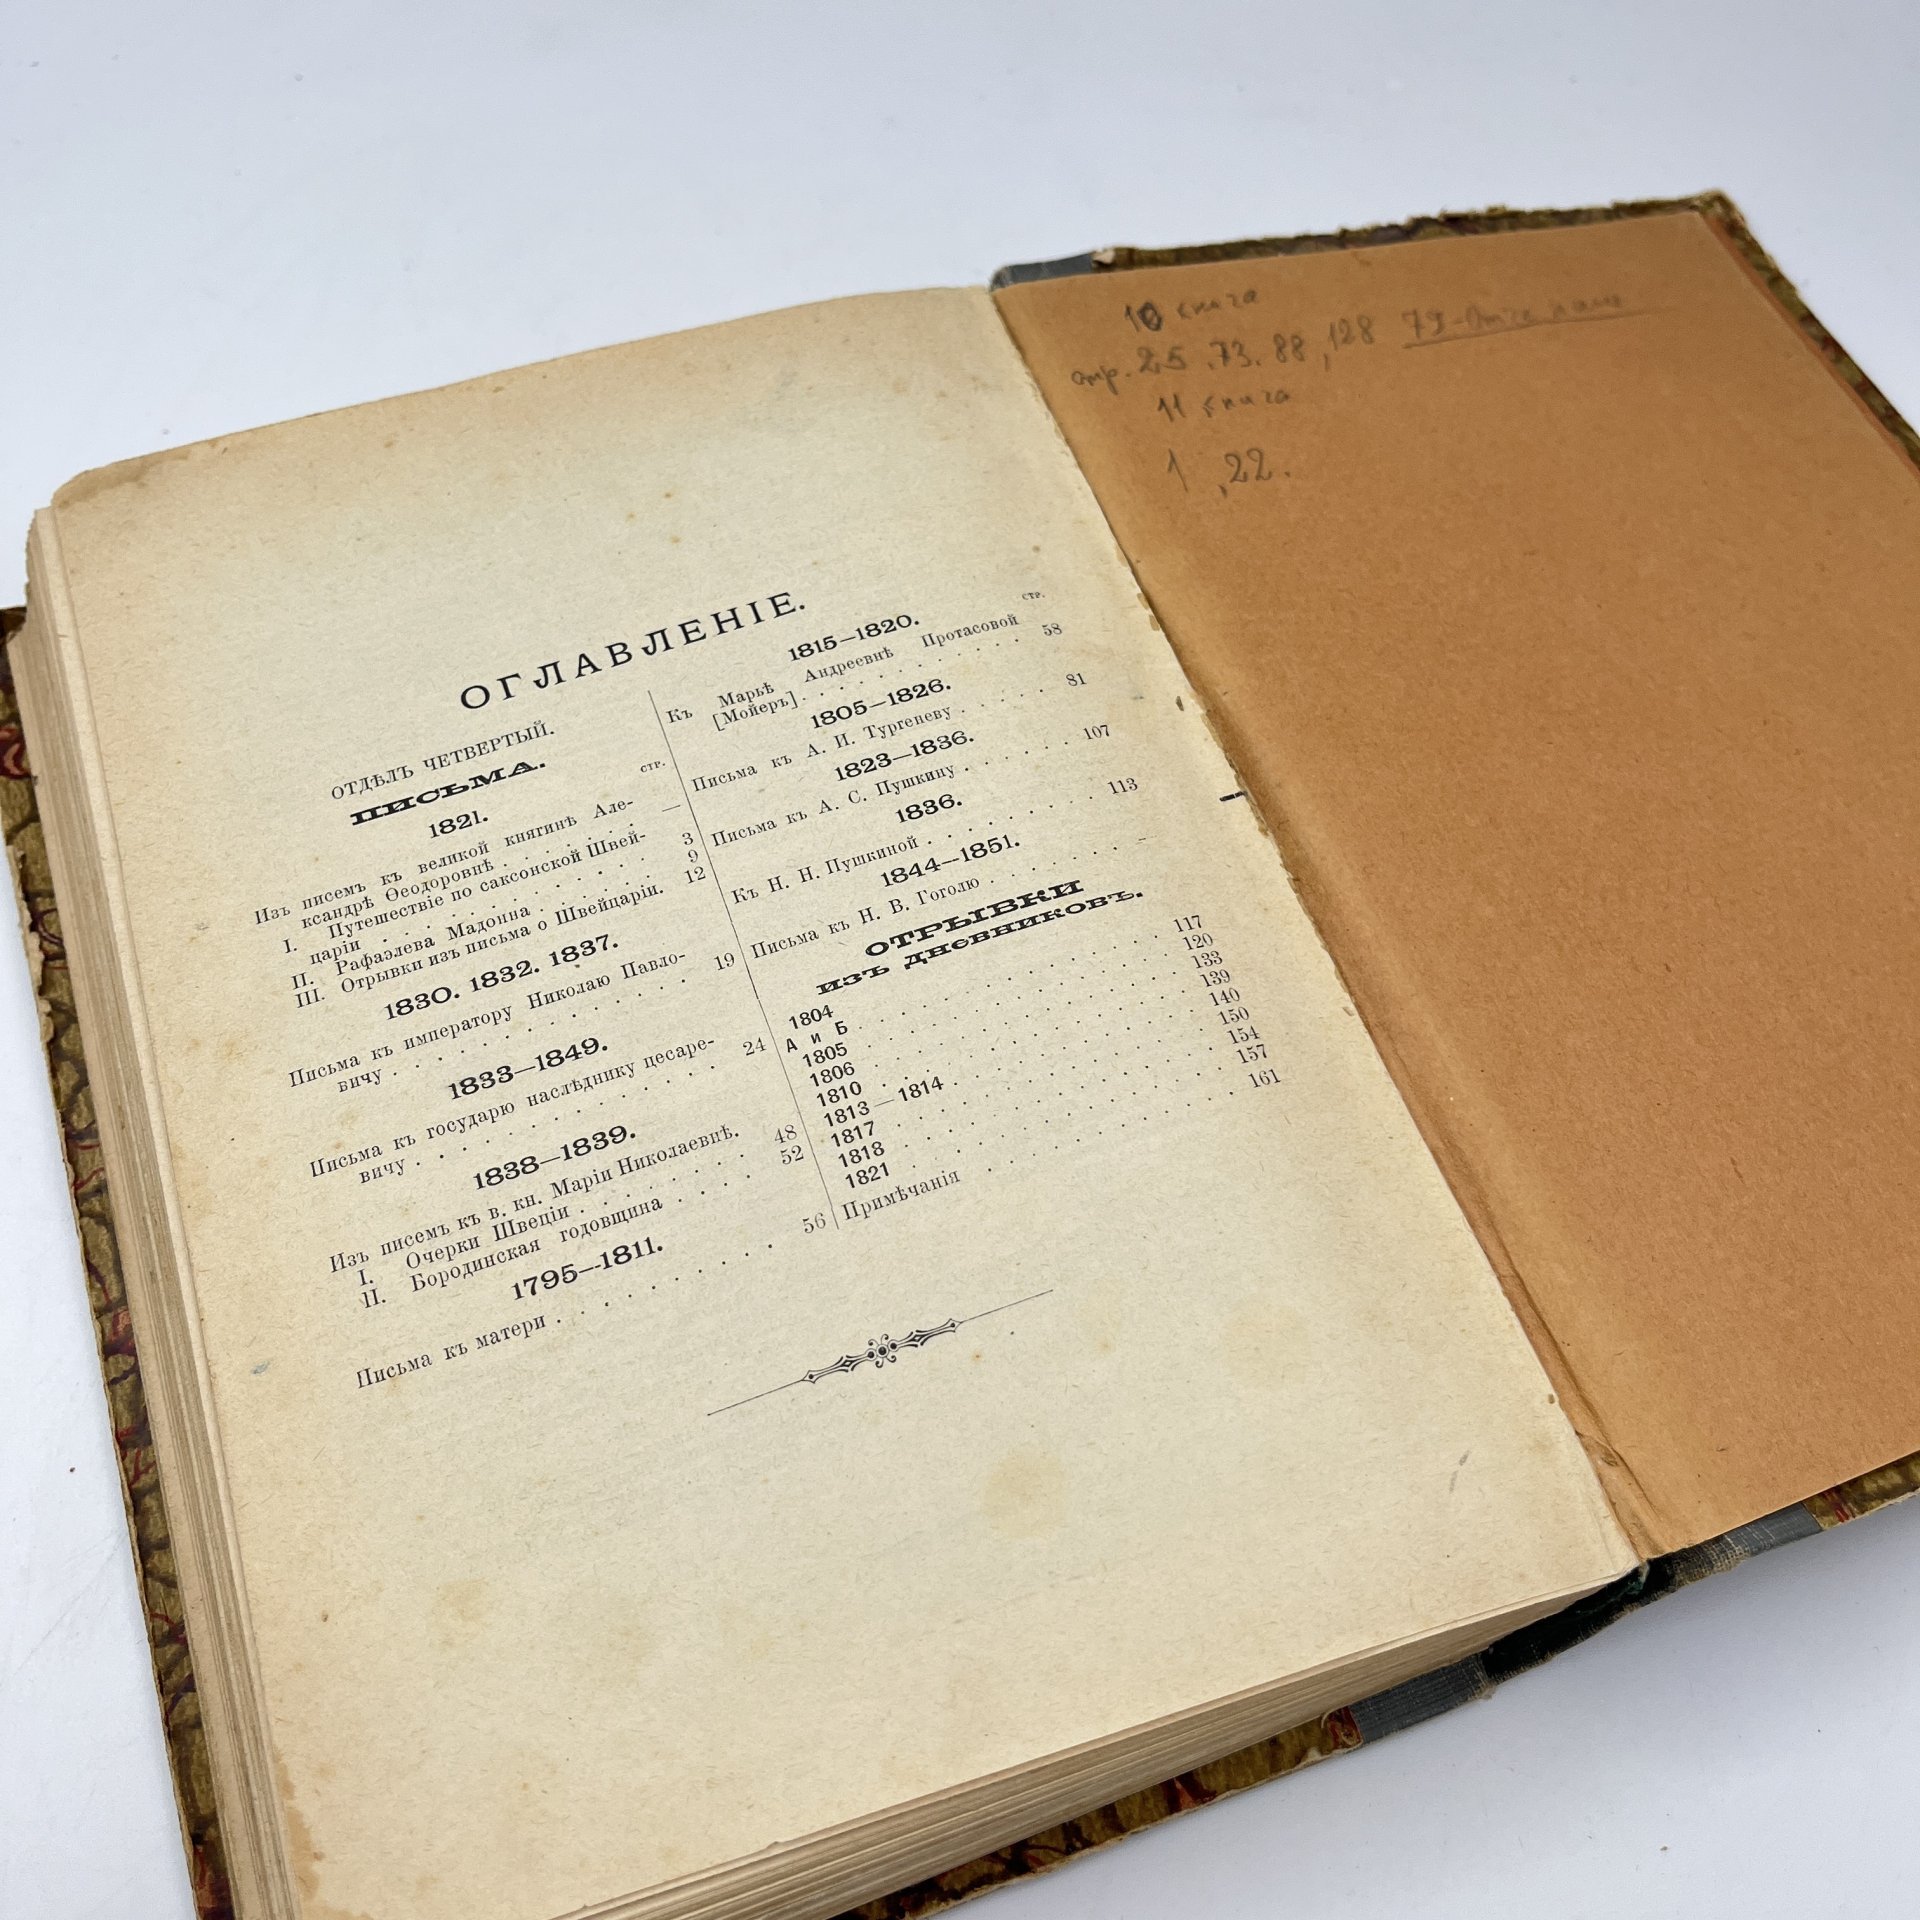 ОГЛАВЛЕНІЕ.
ОТДѢЛЪ ЧЕТВЕРТЫЙ.
ПИСЬМА.
стр.
1821.
Изъ писемъ къ великой княгинѣ Але-
ксандрѣ Ѳеодоровнѣ . . . . . . —
I. Путешествіе по саксонской Швей-
царіи . . . . . . . . . . 3
II. Рафаэлева Мадонна . . . . . . 9
III. Отрывки изъ письма о Швейцаріи. 12
1830. 1832. 1837.
Письма къ императору Николаю Павло-
вичу . . . . . . . . . . . 19
1833—1849.
Письма къ государю наслѣднику цесаре-
вичу . . . . . . . . . . . 24
1838—1839.
Изъ писемъ къ в. кн. Маріи Николаевнѣ.
I. Очерки Швеціи . . . . . . . 48
II. Бородинская годовщина . . . . 52
1795—1811.
Письма къ матери . . . . . . . . . 56
стр.
1815—1820.
Къ Марьѣ Андреевнѣ Протасовой
[Мойеръ] . . . . . . . . . . 58
1805—1826.
Письма къ А. И. Тургеневу . . . . . 81
1823—1836.
Письма къ А. С. Пушкину . . . . . . 107
1836.
Къ Н. Н. Пушкиной . . . . . . . . 113
1844—1851.
Письма къ Н. В. Гоголю . . . . . . . —
ОТРЫВКИ
ИЗЪ ДНЕВНИКОВЪ.
1804 . . . . . . . . . . . 117
А и Б . . . . . . . . . . . 120
1805 . . . . . . . . . . . 133
1806 . . . . . . . . . . . 139
1810 . . . . . . . . . . . 140
1813—1814 . . . . . . . . . 150
1817 . . . . . . . . . . . 154
1818 . . . . . . . . . . . 157
1821 . . . . . . . . . . . 161
Примѣчанія . . . . . . . . .
10 книга
стр. 25 , 73. 88 , 128 79-Отче наш
11 книга
1 , 22.